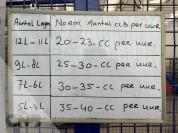 Aantal Lagen Norm Aantal cc's per uur.
12L - 11L 20-23-cc per uur.
9L - 8L 25-30-cc per uur.
7L - 6L 30-35-cc per uur.
5L - 4L 35-40-cc per uur.